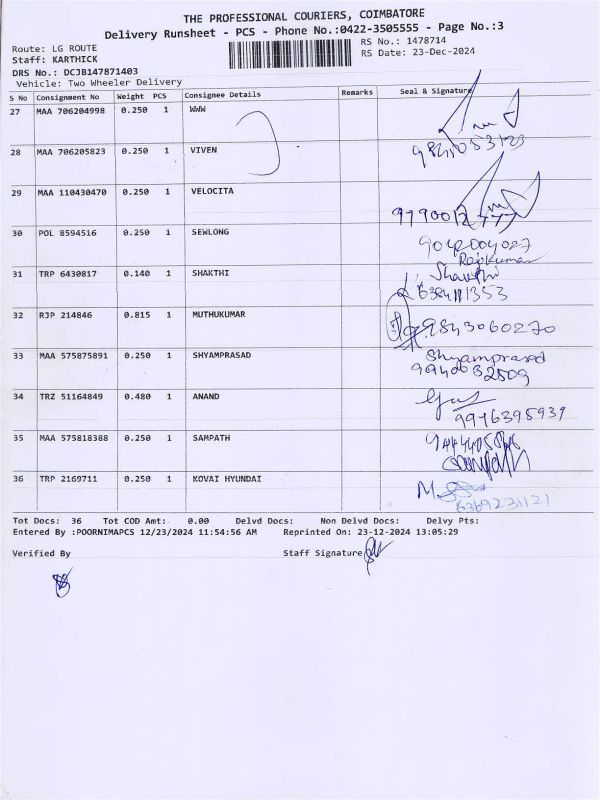 THE PROFESSIONAL COURIERS, COIMBATORE
Delivery Runsheet - PCS - Phone No.:0422-3505555 - Page No.:3
Route: LG ROUTE RS No.: 1478714
Staff: KARTHICK RS Date: 23-Dec-2024
DRS No.: DCJB147871403
Vehicle: Two Wheeler Delivery
S No Consignment No Weight PCS Consignee Details Remarks Seal & Signature
27 MAA 706204998 0.250 1 WWW
28 MAA 706205823 0.250 1 VIVEN
29 MAA 110430470 0.250 1 VELOCITA
30 POL 8594516 0.250 1 SEWLONG 9042004027
Rajkumar
31 TRP 6430817 0.140 1 SHAKTHI Shakthi
32 RJP 214846 0.815 1 MUTHUKUMAR 9843060270
33 MAA 575875891 0.250 1 SHYAMPRASAD Shyamprasad
34 TRZ 51164849 0.480 1 ANAND
9976395937
35 MAA 575818388 0.250 1 SAMPATH
36 TRP 2169711 0.250 1 KOVAI HYUNDAI
6369231121
Tot Docs: 36 Tot COD Amt: 0.00 Delvd Docs: Non Delvd Docs: Delvy Pts:
Entered By :POORNIMAPCS 12/23/2024 11:54:56 AM Reprinted On: 23-12-2024 13:05:29
Verified By Staff Signature